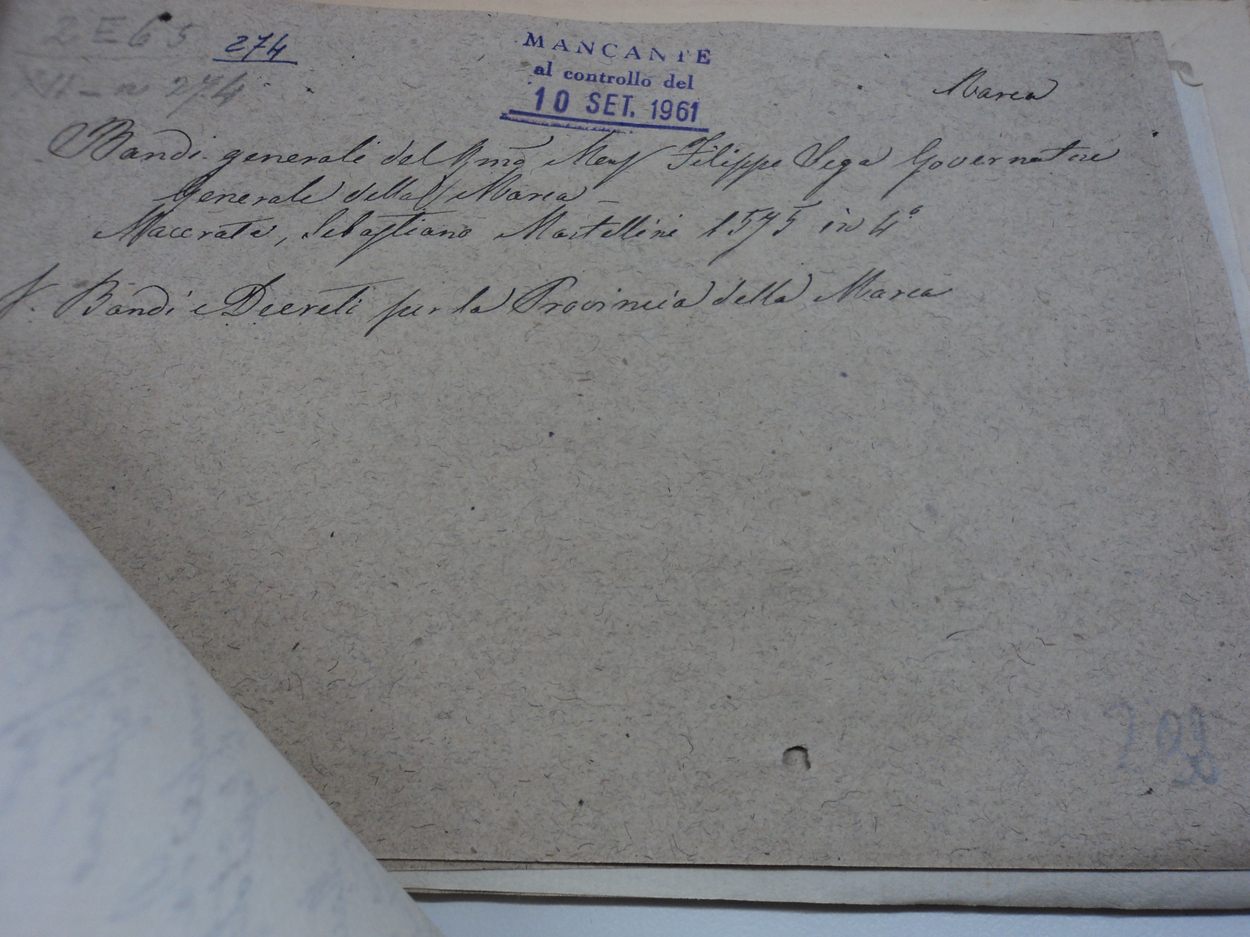 2E65 274
VI - n 274
MANCANTE
al controllo del
10 SET. 1961
Marca
Bandi generali del Rmo Mons Filippo Sega Governatore
Generale della Marca
Macerata, Sebastiano Martellini 1575 in 4°
f. Bandi e Decreti per la Provincia della Marca